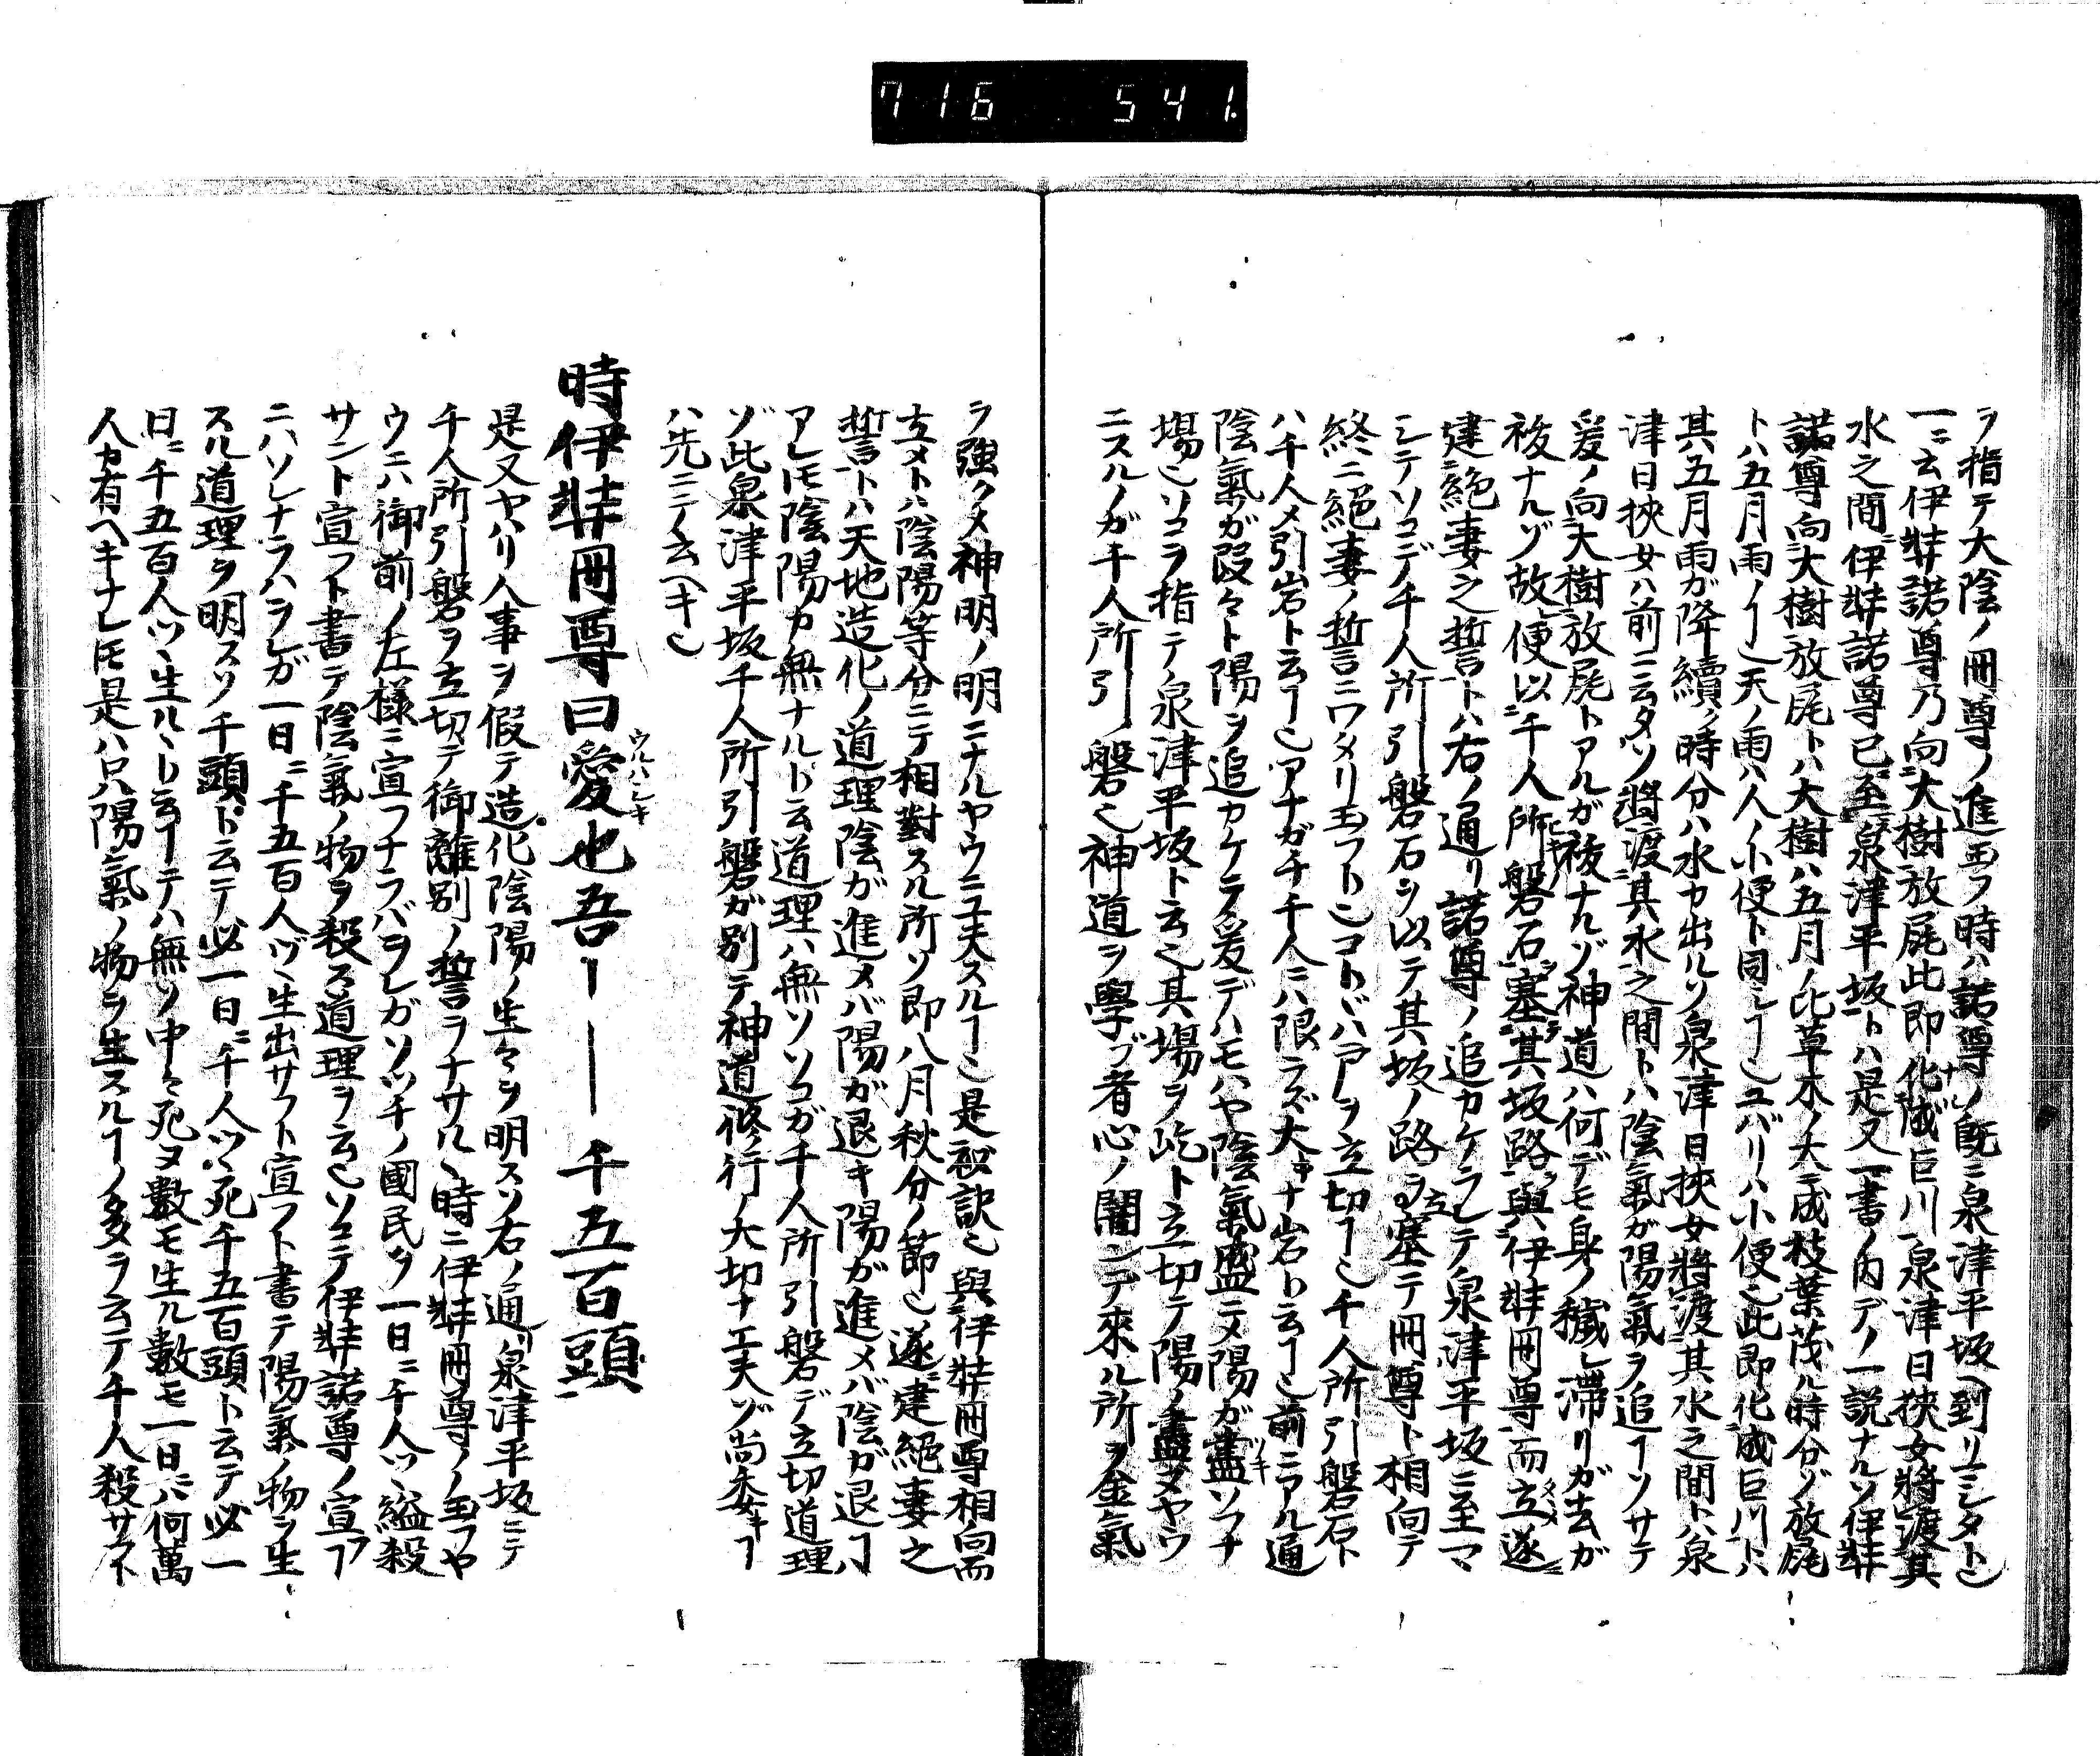 716 541.
ヲ指テ大陰ノ冊尊ノ進玉フ時ハ諾尊ノ既ニ泉津平坂ヘ到リマシタト也
一ニ云伊弉諾尊乃向大樹放尿此即化成巨川泉津日狹女將渡其
水之間伊弉諾尊已至泉津平坂トハ是又一書ノ内デノ一説ナルソ伊弉
諾尊向大樹放尿トハ大樹ハ五月ノ比草木ノ大ニ成枝葉茂ル時分ゾ放尿
トハ五月雨ノヿ也天ノ雨ハ人ノ小便ト同シヿ也ユバリハ小便也此即化成巨川トハ
其五月雨ガ降續ク時分ハ水カ出ルソ泉津日狹女將渡其水之間トハ泉
津日狹女ハ前ニ云タソ將渡其水之間トハ陰氣ガ陽氣ヲ追ヿソサテ
爰ノ向大樹放尿トアルガ祓ナルゾ神道ハ何デモ身ノ穢レ滯リガ去ガ
祓ナルゾ故便以千人所引磐石塞其坂路與伊弉冊尊而立遂
建絶妻之誓トハ右ノ通リ諾尊ノ追カケラレテ泉津平坂ニ至マ
シテソコデノ千人所引磐石ヲ以テ其坂ノ路ヲ立塞テ冊尊ト相向テ
終ニ絶妻ノ誓ニワメリ玉フト也コトバハアレヲ立切ヿ也千人所引磐石ト
ハ千人メ引岩ト云ヿ也アナガチ千人ニハ限ラズ大キナ岩ト云ヿ也前ニアル通
陰氣ガ段々ト陽ヲ追カケテ爰デハモハヤ陰氣盛ニメ陽ガ盡ソフナ
場也ソコヲ指テノ泉津平坂ト云也其場ヲ屹ト立切テ陽ノ盡ヌヤウ
ニスルノガ千人所引ノ磐也神道ヲ學ブ者心ノ闇シテ來ル所ヲ金氣
ヲ強クメ神明ノ明ニナルヤウニ工夫スルヿ也是祕訣也與伊弉冊尊相向而
立メトハ陰陽等分ニテ相對スル所ソ即八月秋分ノ節也遂建絶妻之
誓トハ天地造化ノ道理陰ガ進メバ陽ガ退キ陽ガ進メバ陰ガ退ク
アレ𪜈陰陽カ無ナルト云道理ハ無ソソコガ千人所引磐デ立切道理
ゾ此泉津平坂千人所引磐ガ別テ神道修行ノ大切ナ工夫ゾ尚委キヿ
ハ先ニテ云ヘキ也
時伊弉冊尊曰愛也吾ーー千五百頭
ウルハシキ
是又ヤハリ人事ヲ假テ造化陰陽ノ生々ヲ明スソ右ノ通リ泉津平坂ニテ
千人所引磐ヲ立切テ御離別ノ誓ヲナサルヽ時ニ伊弉冊尊ノノ玉フヤ
ウニハ御前ノ左樣ニ宣フナラバヲレガソッチノ國民ヲ一日ニ千人ツヽ縊殺
サント宣フト書テ陰氣ノ物ヲ殺ス道理ヲ云也ソコテ伊弉諾尊ノ宣フ
ニハソレナラハヲレガ一日ニ千五百人ヅヽ生出サフト宣フト書テ陽氣ノ物ヲ生
スル道理ヲ明スソ千頭ト云テ必一日ニ千人ツヽ死千五百頭ト云テ必一
日ニ千五百人ツヽ生ルヽト云ヿテハ無ソ中々死ヌ數モ生ル數モ一日ニハ何萬
人カ有ヘキナレ𪜈是ハ只陽氣ノ物ヲ生スルヿノ多ヲ云テ千人殺サフト